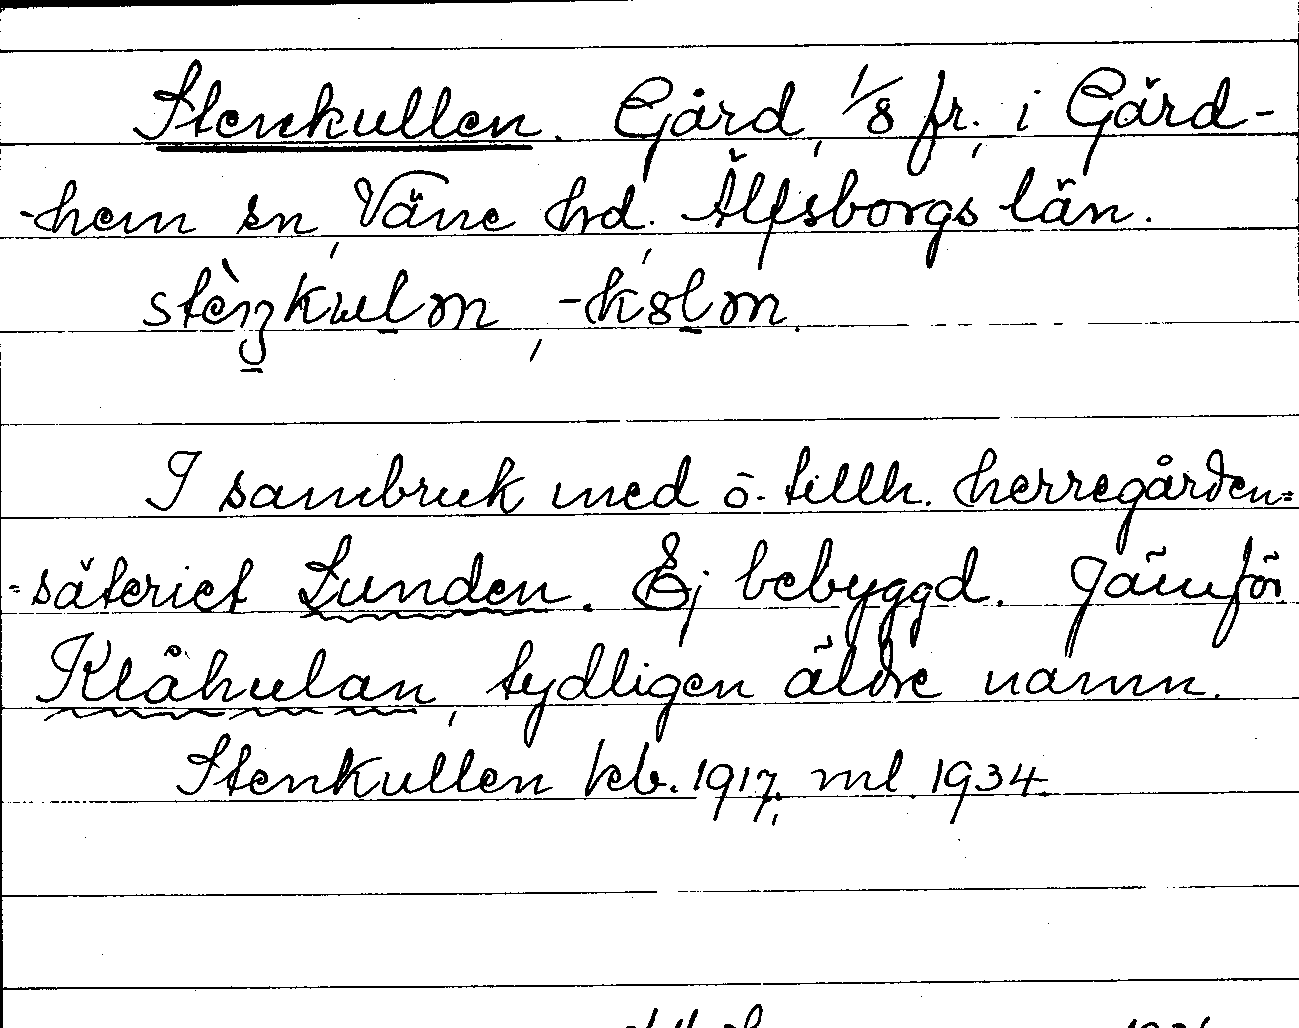 Stenkullen. Gård, 1/8 fr., i Gärd-
-hem sn, Väne hd, Älfsborgs län.
I sambruk med ö. tillh. herregården=
=säteriet Lunden. Ej bebyggd. Jämför
Klåhulan, tydligen äldre namn.
Stenkullen keb. 1917, ml. 1934.